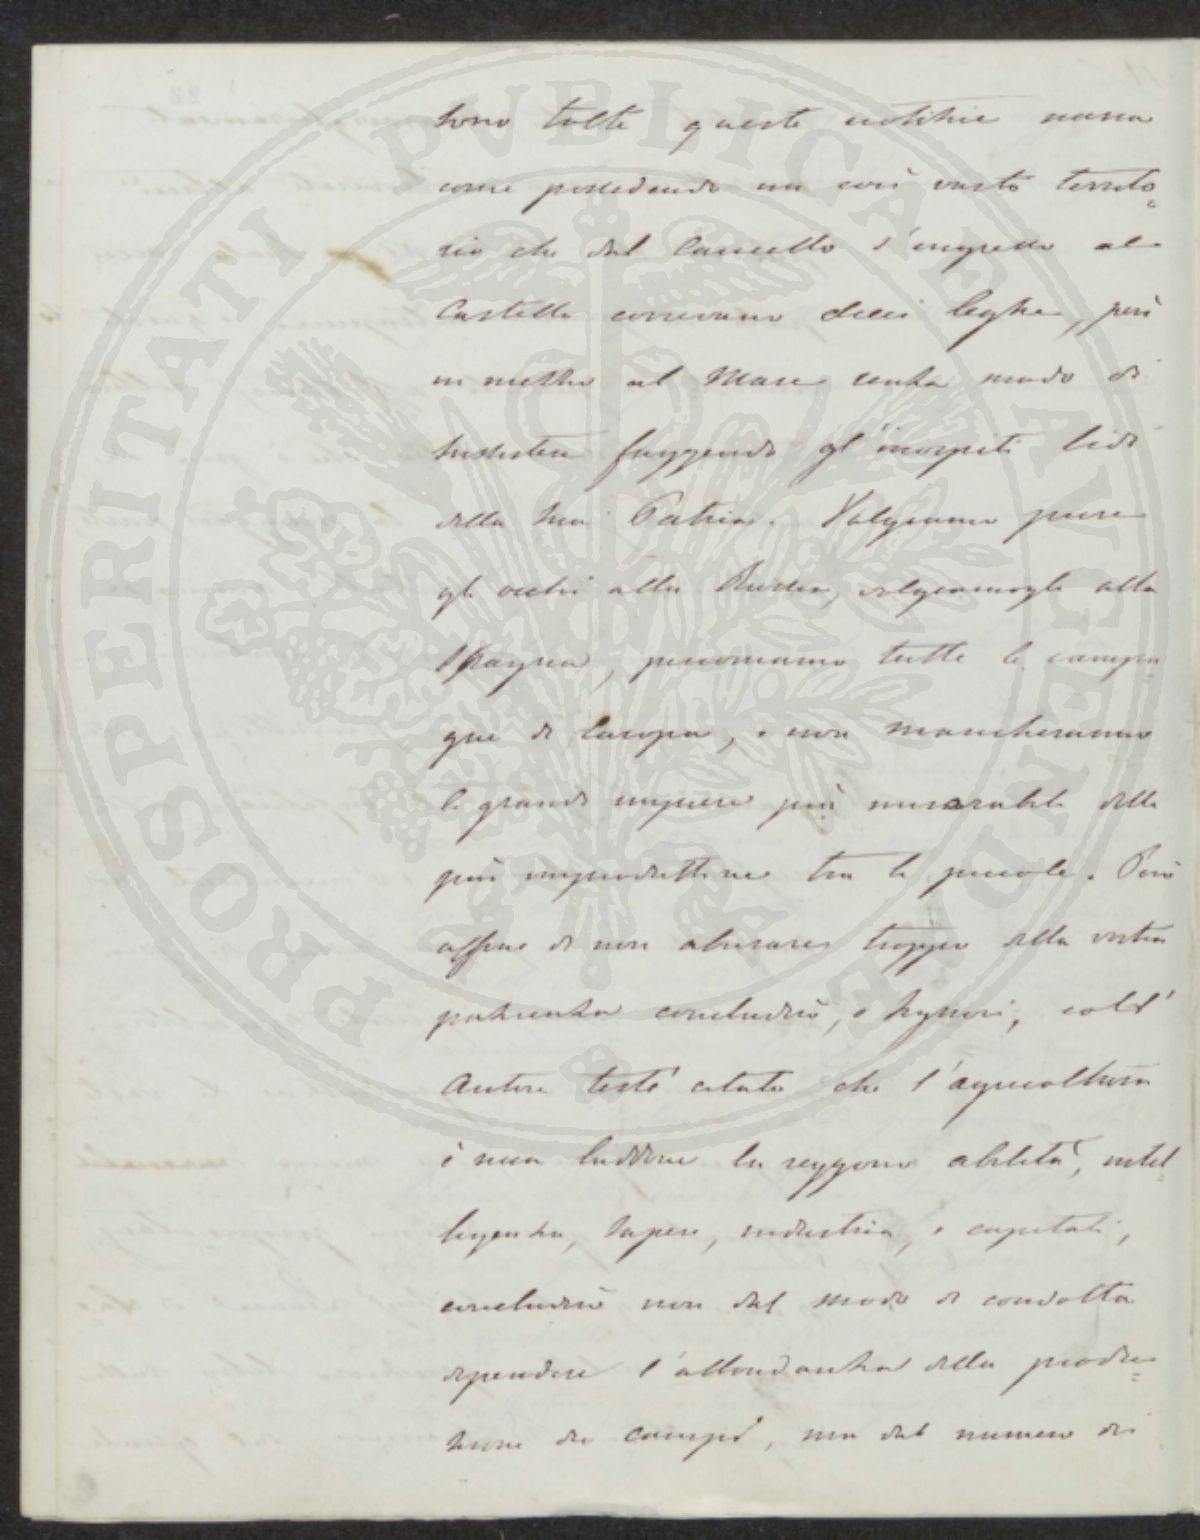 sono tolte queste notizie narra
come possedendo un così vasto territo=
rio che dal Cancello d'ingresso al
Castello correvano dieci leghe, perì
in mezzo al Mare senza modo di
sussistere fuggendo gl'inospiti lidi
della sua Patria. Volgiamo pure
gli occhi alla Russia, volgiamogli alla
Spagna, percorriamo tutte le campa=
gne di Europa, e non mancheranno
le grandi imprese più miserabili della
più improduttiva tra le piccole. Però
affine di non abusare troppo della vostra
pazienza concluderò, o Signori, coll'
Autore testè citato che l'agricoltura
è una laddove la reggono abilità, intel=
ligenza, sapere, industria, e capitali,
concluderò non dal modo di condotta
dipendere l'abbondanza della produ=
zione dei campi, ma dal numero di
PROSPERITATI PVBLICAE AVGENDAE